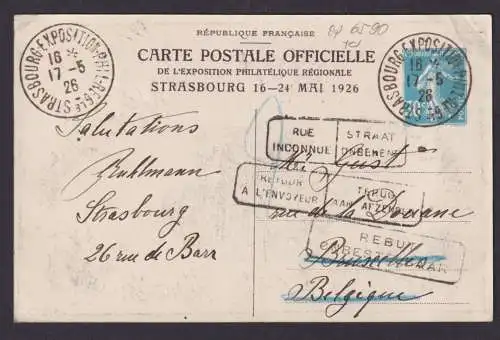 RÉPUBLIQUE FRANÇAISE
CARTE POSTALE OFFICIELLE
DE L'EXPOSITION PHILATÉLIQUE RÉGIONALE
STRASBOURG 16-24 MAI 1926
STRASBOURG-EXPOSITION-PHILATÉLIE
16 *
17 -5
26
STRASBOURG-EXPOSITION-PHILATÉLIE
16 *
17 -5
26
Salutations
Ruhlmann
Strasbourg
26 rue de Barr
RUE INCONNUE
STRAAT ONBEKEND
RETOUR À L'ENVOYEUR
TERUG AAN AFZENDER
rue de la Douane
REBUT
ONBESTELBAAR
Bruxelles
Belgique